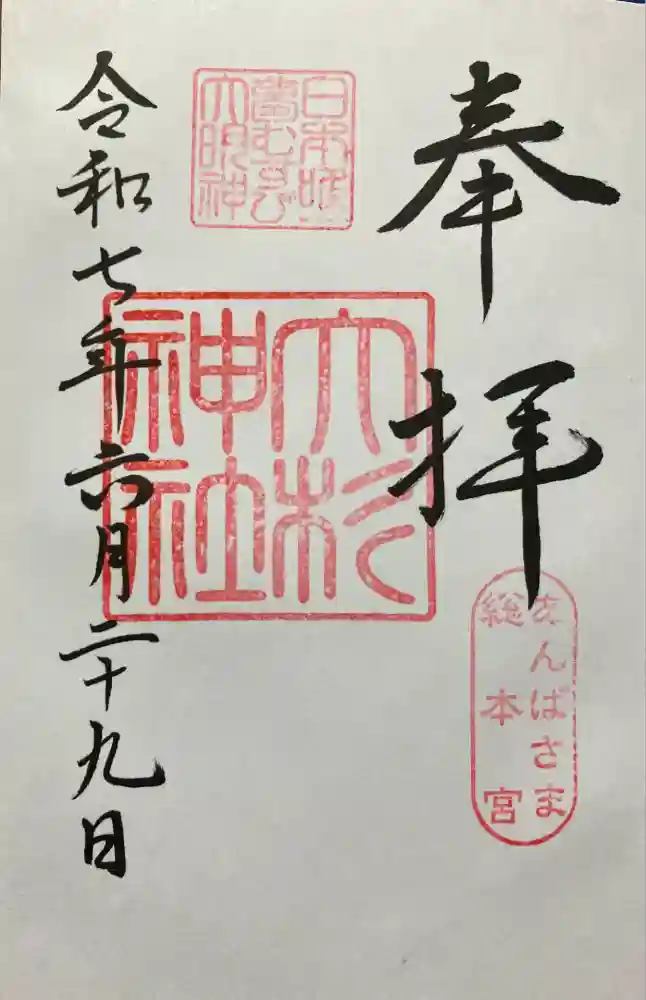 奉拝
あんばさま
総本宮
日本唯
一夢むすび
大明神
大杉
神社
令和七年六月二十九日